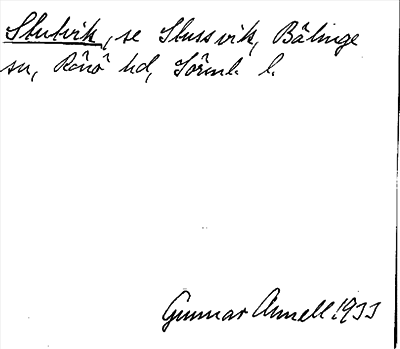 Slutvik, se Slussvik, Bälinge
sn, Rönö hd, Sörml. l.
Gunnar Annell 1933